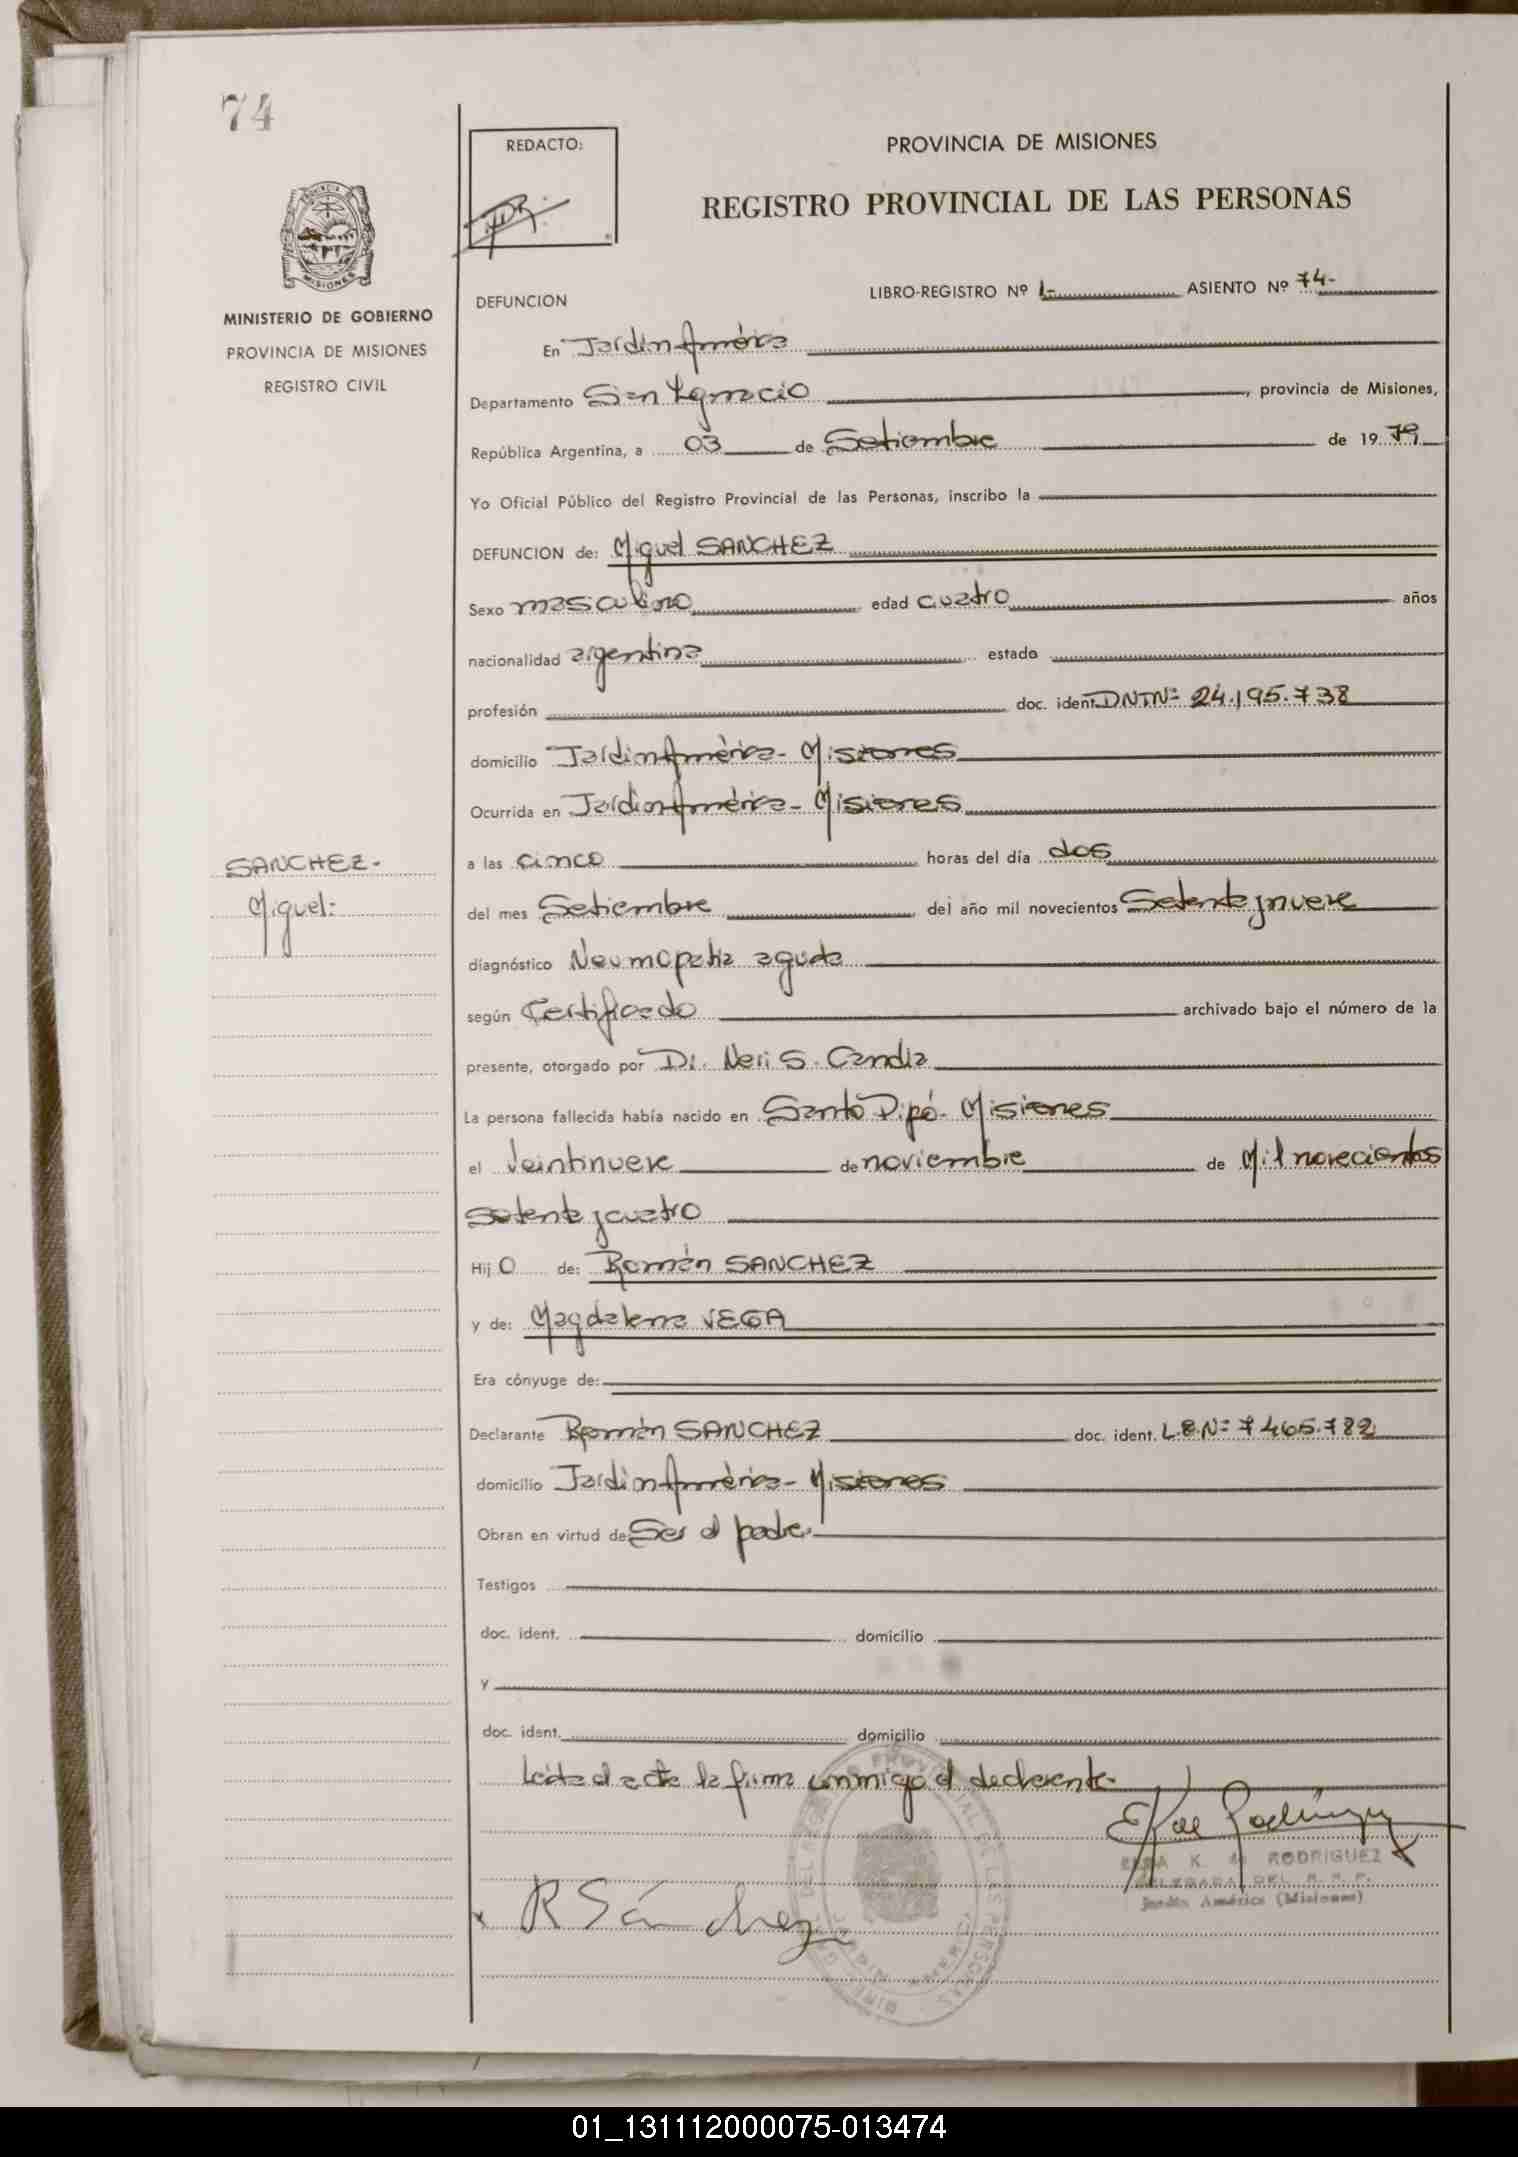 74
REDACTO:
PROVINCIA DE MISIONES
REGISTRO PROVINCIAL DE LAS PERSONAS
PROVINCIA
MISIONES
MINISTERIO DE GOBIERNO
PROVINCIA DE MISIONES
REGISTRO CIVIL
DEFUNCION LIBRO-REGISTRO Nº 1- ASIENTO Nº 74-
En Jardin América
Departamento San Ignacio, provincia de Misiones,
República Argentina, a 03 de Setiembre de 1979
Yo Oficial Público del Registro Provincial de las Personas, inscribo la
DEFUNCION de: Miguel SANCHEZ
Sexo masculino edad cuatro años
nacionalidad argentina estado
profesión doc. ident. DNINº 24.195.738
domicilio Jardin América - Misiones
Ocurrida en Jardin América - Misiones
SANCHEZ-
Miguel:
a las cinco horas del día dos
del mes Setiembre del año mil novecientos Setenta y nueve
diagnóstico Neumopatia aguda
según Certificado archivado bajo el número de la
presente, otorgado por Dr. Neri S. Candia
La persona fallecida había nacido en Santo Pipó - Misiones
el veintinueve de noviembre de Mil novecientos
setenta y cuatro
Hijo de: Román SANCHEZ
y de: Magdalena VEGA
Era cónyuge de:
Declarante Román SANCHEZ doc. ident. L.E.Nº 7465.782
domicilio Jardin América - Misiones
Obran en virtud de Ser el padre.
Testigos
doc. ident. domicilio
y
doc. ident. domicilio
Leida el acta la firma conmigo el declarante.
K. de RODRIGUEZ
DELEGADA DEL R.P.P.
Jardín América (Misiones)
R Sánchez
01_131112000075-013474